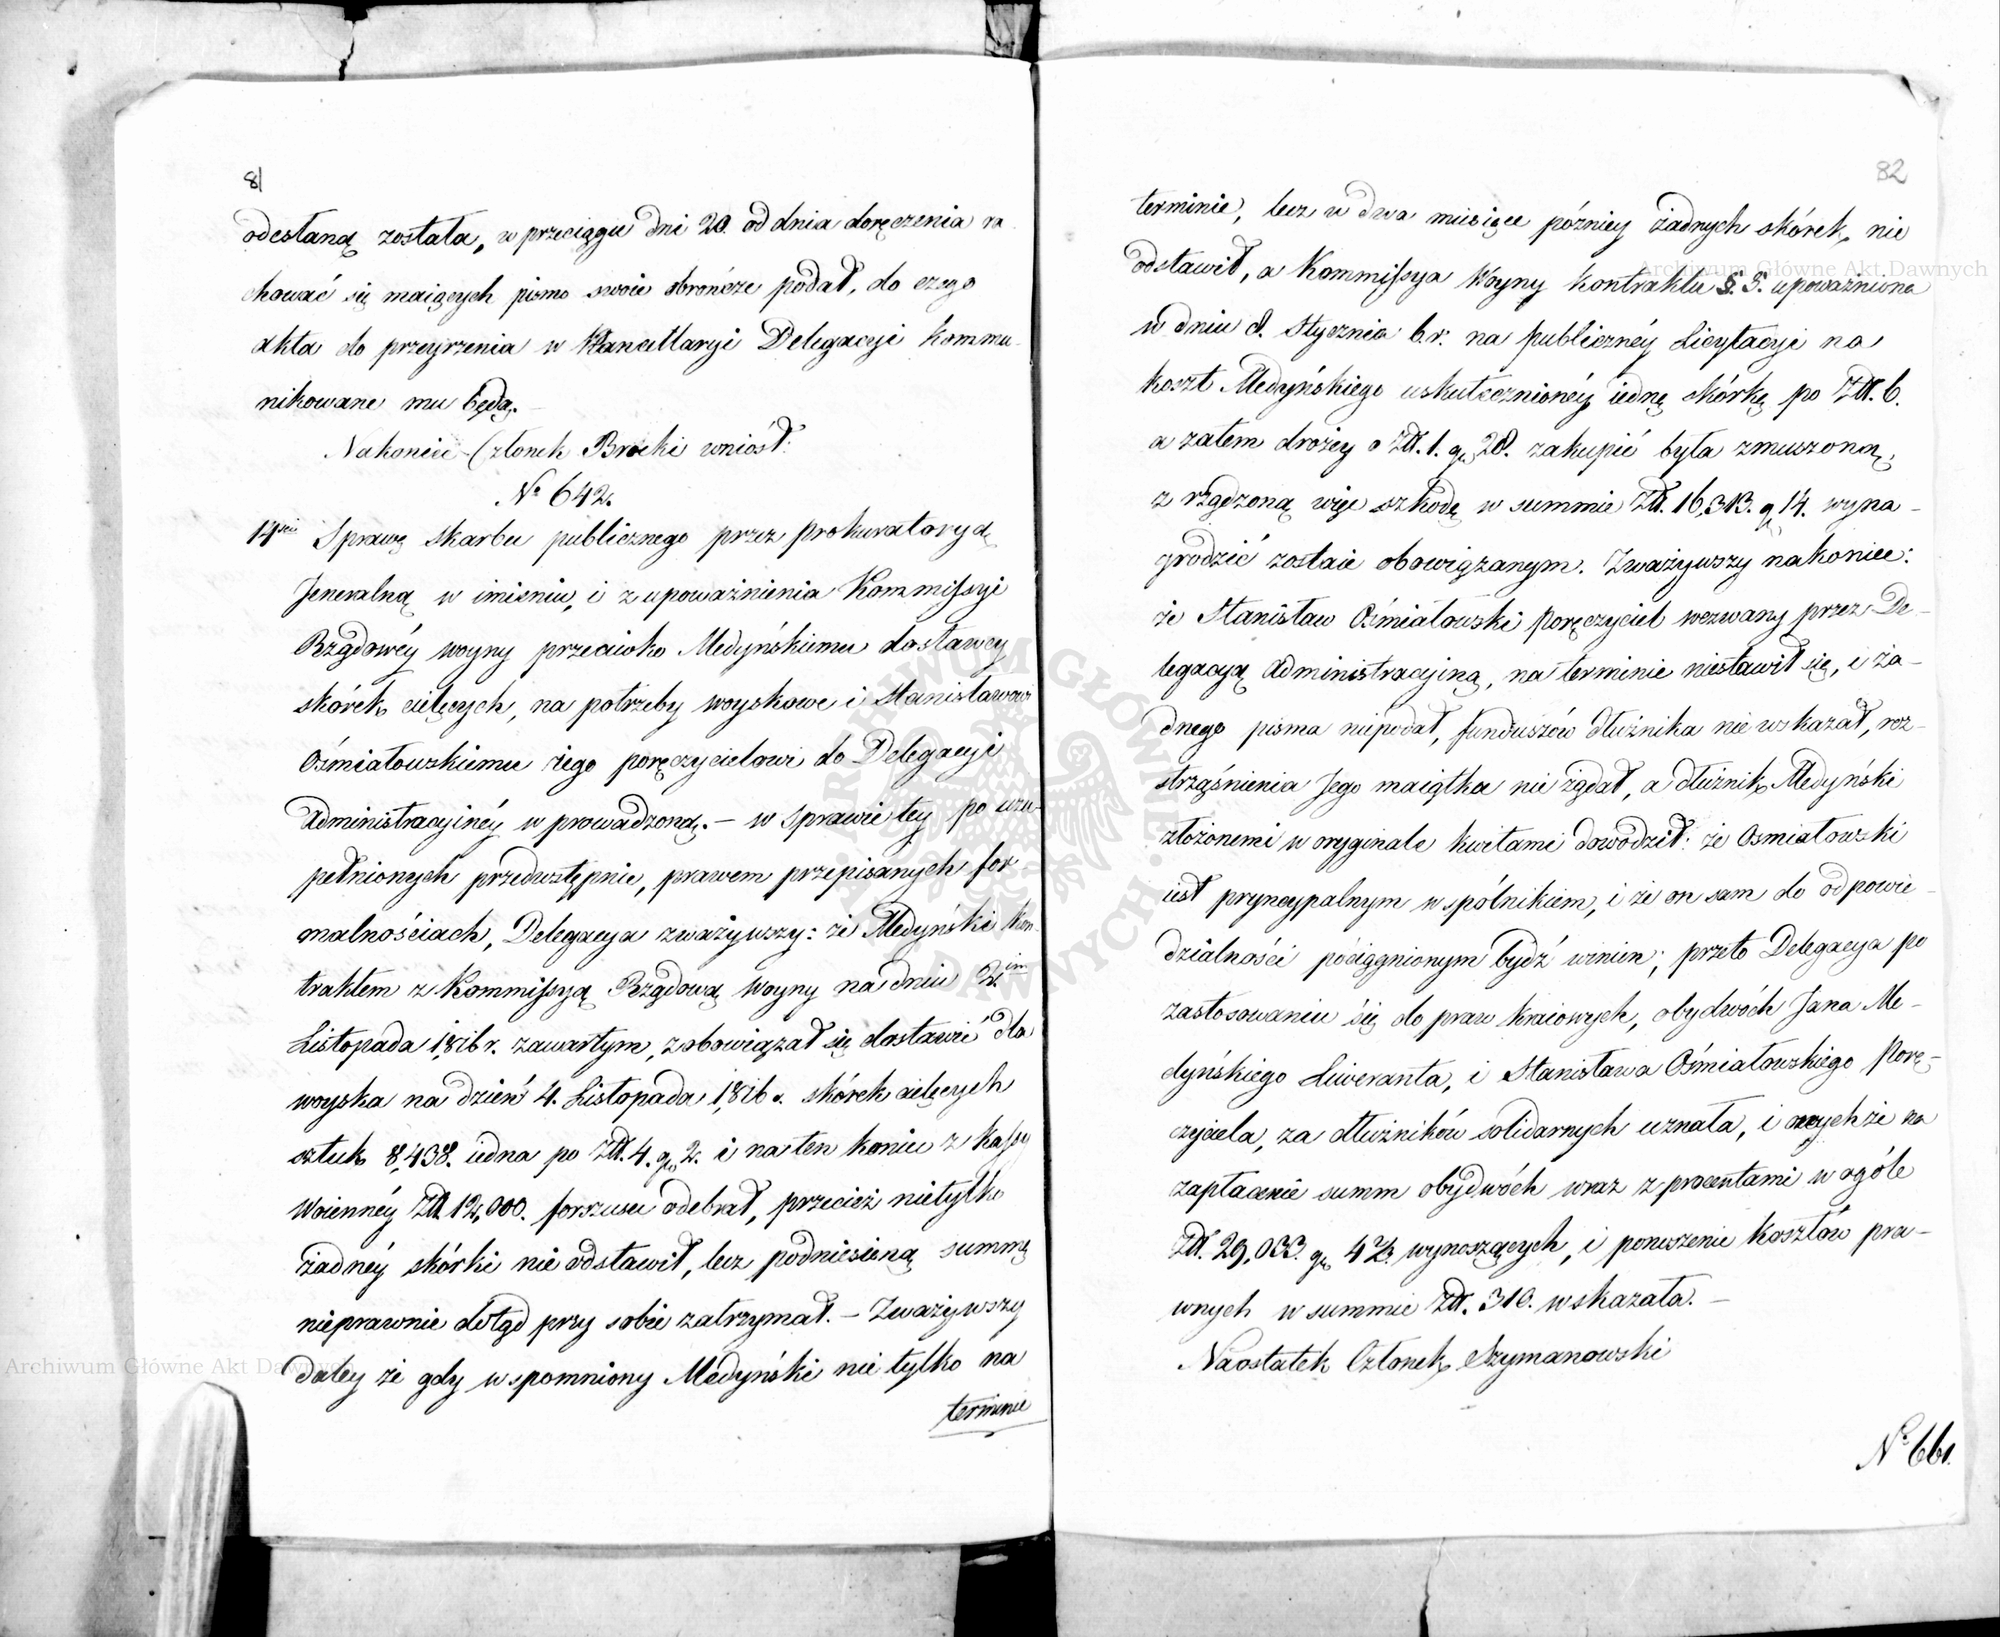 81
odesłaną została, w przeciągu dni 20. od dnia doręczenia ra
chować się maiących pismo swoie obrończe podał, do czego
akta do przeyrzenia w Kancellaryi Delegacyi kommu
nikowane mu będą.
Nakoniec Członek Brocki wniósł:
No 642.
14sie Sprawę skarbu publicznego przez Prokuratoryą
Jeneralną w imieniu, i z upoważnienia Kommissyi
Rządowéy woyny przeciwko Medyńskiemu dostawcy
skórek cielęcych, na potrzeby woyskowe i Stanisławowi
Ośmiałowskiemu iego poręczycielowi do Delegacyi
Administracyinéy wprowadzoną. – w sprawie tey po uzu-
pełnionych przedwstępnie, prawem przepisanych for
malnościach, Delegacya zważywszy: że Medyński kon-
traktem z Kommissyą Rządową woyny na dniu 2im
Listopada 1816 r. zawartym, zobowiązał się dostawić dla
woyska na dzień 4. Listopada 1816 r. skórek cielęcych
sztuk 8,438. iedna po Zł. 4. gr. 2. i na ten koniec z kassy
Woienney Zł. 12,000. forszusu odebrał, przecież nietylko
żadnéy skórki nie odstawił, lecz podniesioną summę
nieprawnie dotąd przy sobie zatrzymał. – Zważywszy
daley że gdy wspomniony Medyński nie tylko na
terminie
82
terminie, lecz w dwa miesiące późniey żadnych skórek, nie
odstawił, a Kommissya Woyny kontraktu §. 5. upoważniona
w dniu 8. Stycznia b. r. na publicznéy Licytacyi na
koszt Medyńskiego uskutecznionéy iednę skórkę po Zł. 6.
a zatem drożey o Zł. 1. gr. 28. zakupić była zmuszoną,
zrządzoną więc szkodę w summie Zł. 16,313. gr. 14. wyna-
grodzić zostaie obowiązanym. Zważywszy nakoniec:
że Stanisław Ośmiałowski poręczyciel wezwany przez De-
legacyą Administracyiną, na terminie niestawił się, i ża-
dnego pisma niepodał, funduszów dłużnika nie wskazał, roz-
strząśnienia Jego maiątku nie żądał, a dłużnik Medyński
złożonemi w oryginale kwitami dowodził: że Osmiałowski
iest pryncypalnym wspólnikiem, i że on sam do odpowie-
dzialności pociągnionym bydź winien; przeto Delegacya po
zastosowaniu się do praw kraiowych, obydwóch Jana Me-
dyńskiego Liweranta, i Stanisława Ośmiałowskiego Porę-
czyciela, za dłużników solidarnych uznała, i onychże na
zapłacenie summ obydwóch wraz z procentami w ogóle
Zł. 29,033. gr. 4 2/3. wynoszących, i poniesienie kosztów pra-
wnych w summie Zł. 310. wskazała. –
Naostatek Członek Szymanowski
No 661.
Archiwum Główne Akt Dawnych
Archiwum Główne Akt Dawnych
ARCHIWUM GŁÓWNE AKT DAWNYCH